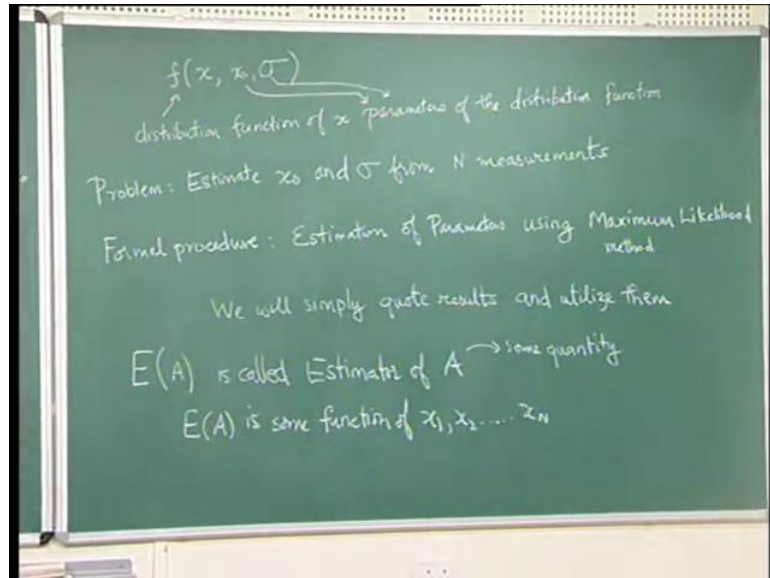 f(x, x₀, σ)
distribution function of x parameters of the distribution function
Problem: Estimate x₀ and σ from N measurements
Formal procedure: Estimation of Parameters using Maximum Likelihood
method
We will simply quote results and utilize them
E(A) is called Estimator of A → some quantity
E(A) is some function of x₁, x₂ ..... x_N